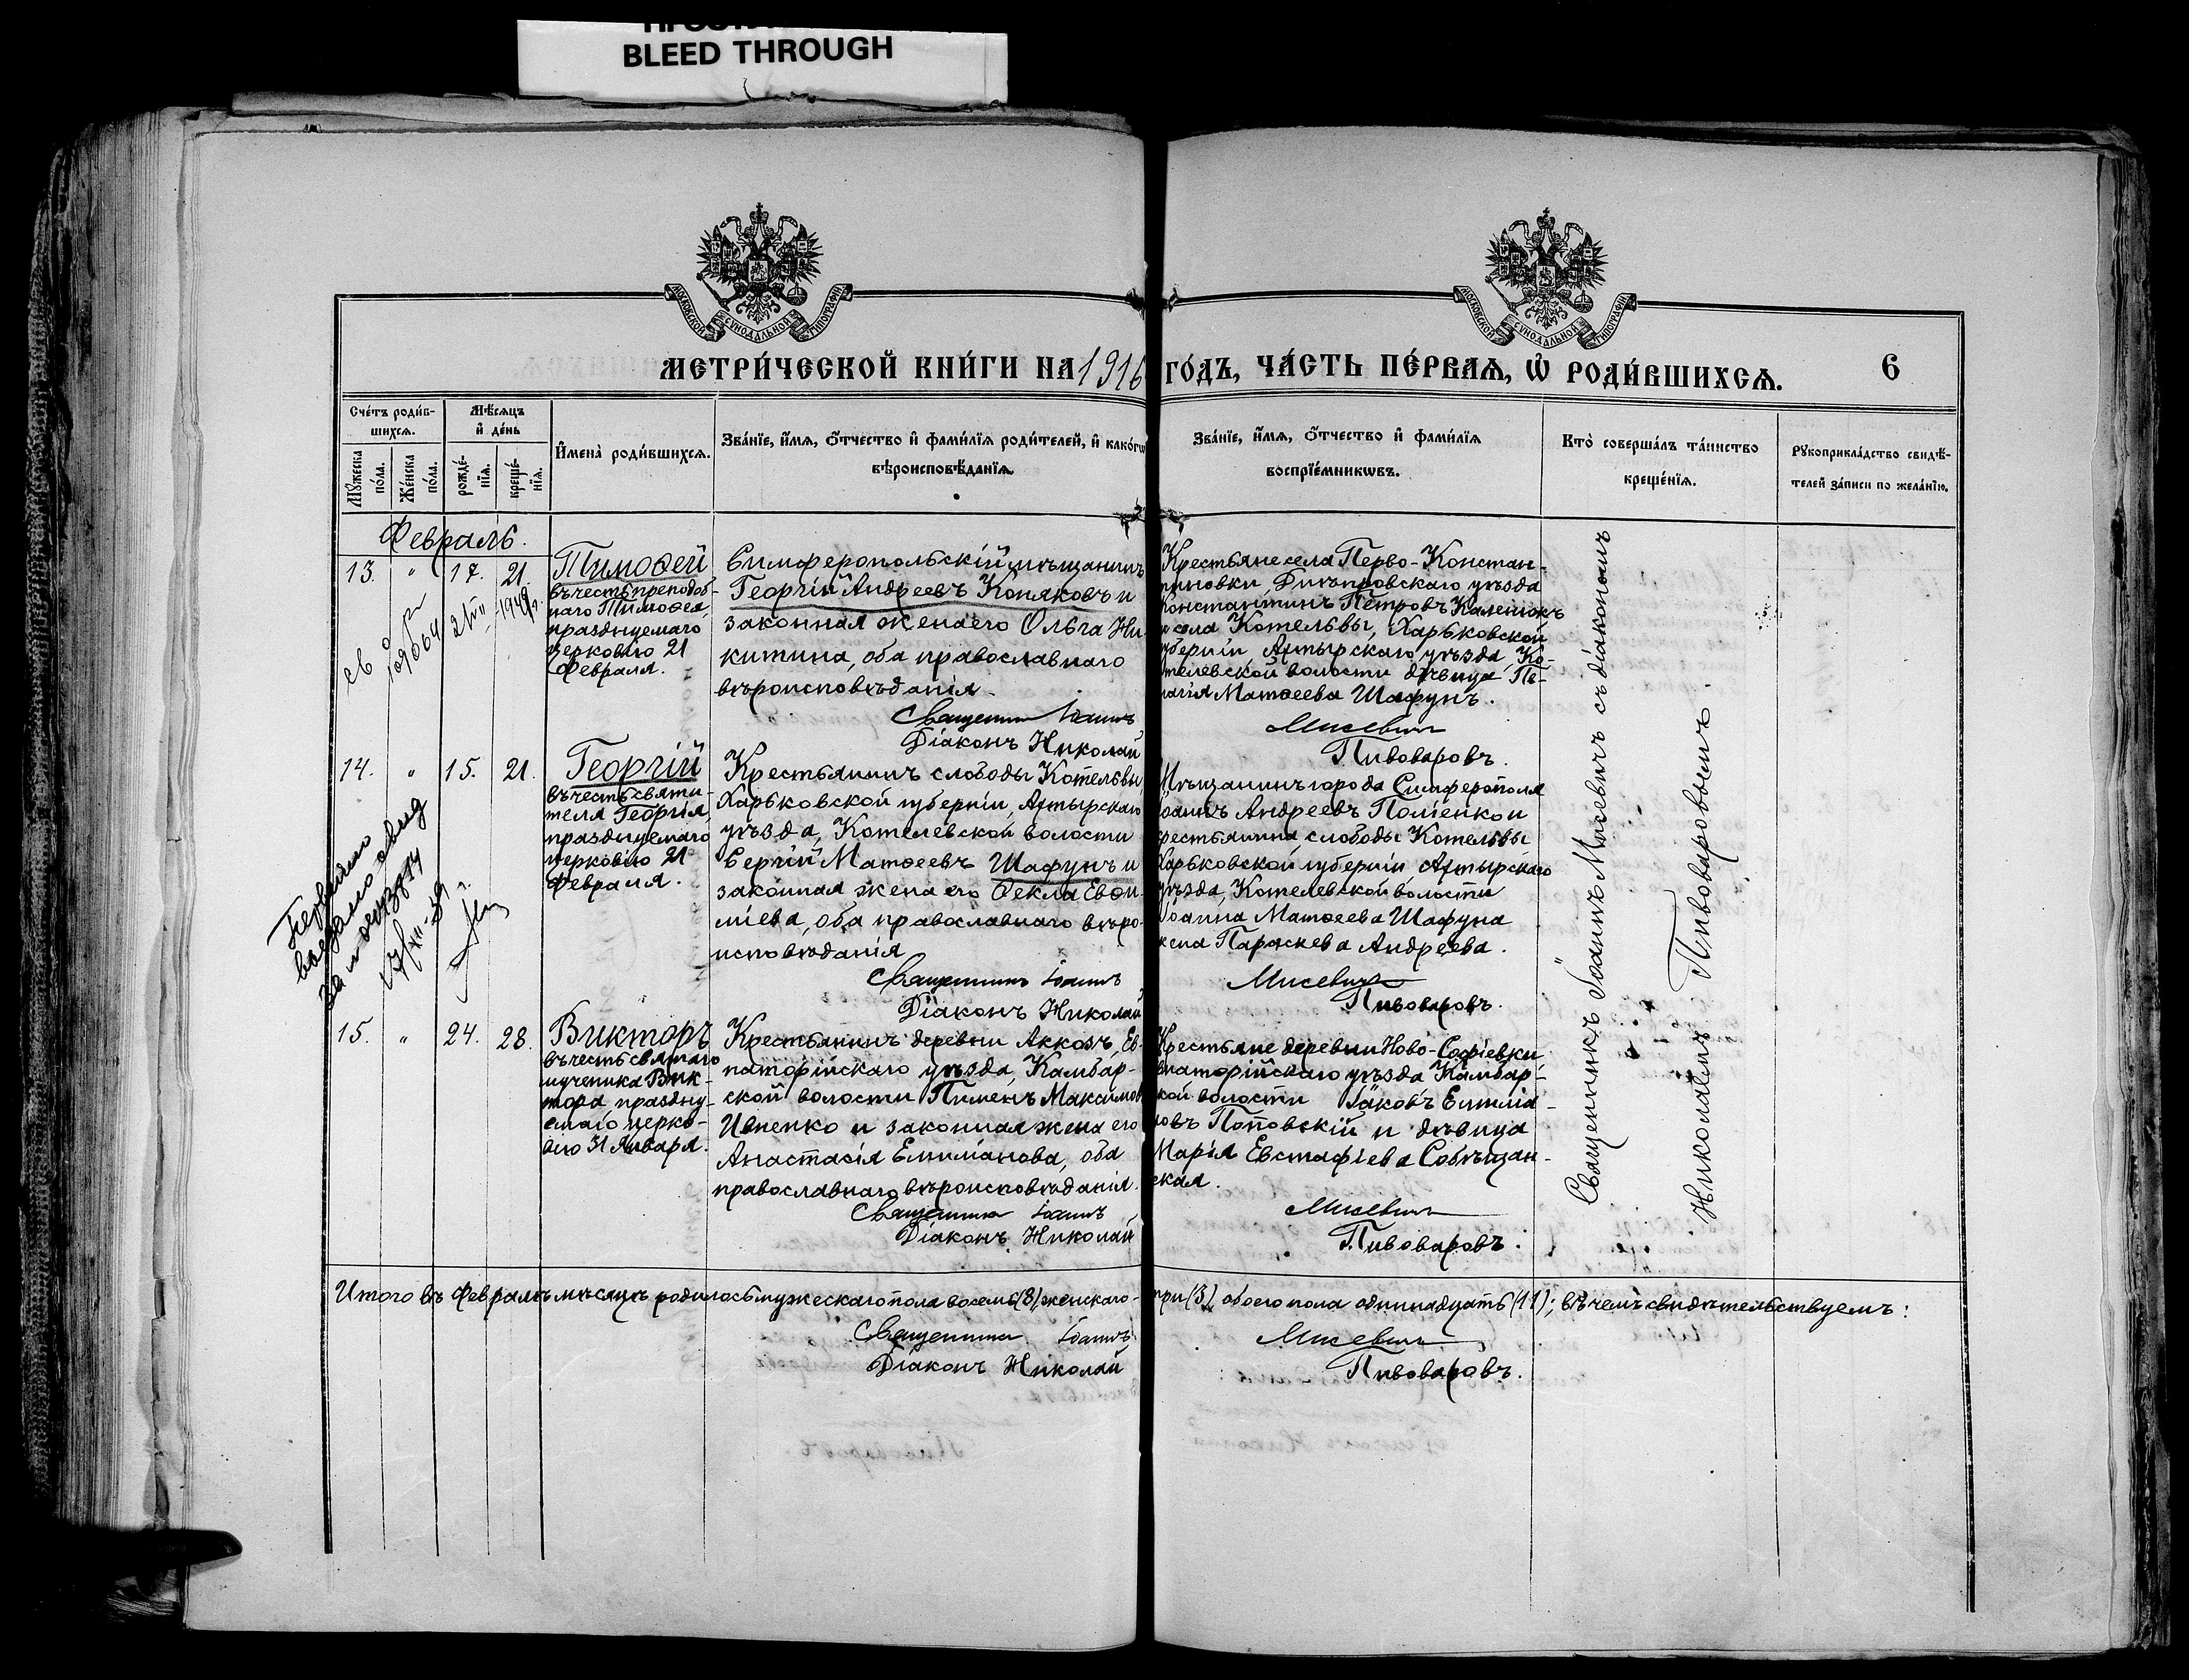 BLEED THROUGH
МОСКОВСКОЙ СѴНОДАЛЬНОЙ ТИПОГРАФІИ
МОСКОВСКОЙ СѴНОДАЛЬНОЙ ТИПОГРАФІИ
МЕТРИ́ЧЕСКОЙ КНИ́ГИ НА 1916 ГО́ДЪ, ЧА́СТЬ ПЕ́РВАѦ, Ѽ РОДИ́ВШИХСѦ.
6
Сче́тъ роди́в-
шихсѧ.
Мѣ́сѧцъ
и҆ де́нь
Мꙋ́жеска
по́ла.
Же́нска
по́ла.
рожде́-
нїѧ.
креще́-
нїѧ.
И҆мена̀ роди́вшихсѧ.
Зва́нїе, и҆́мѧ, ѻ҆́тчество и҆ фами́лїѧ роди́телей, и҆ како́гѡ
вѣроисповѣ́данїѧ.
Зва́нїе, и҆́мѧ, ѻ҆́тчество и҆ фами́лїѧ
воспрїе́мникѡвъ.
Кто̀ соверша́лъ та́инство
креще́нїѧ.
Рꙋкоприкла́дство свидѣ́-
телей за́писи по жела́нїю.
Февраль.
13. " 17. 21.
Тимоѳей
въ честь преподоб-
наго Тимоѳея,
празднуемаго
церковію 21
Февраля.
Симферопольскій мѣщанинъ
Георгій Андреевъ Коняковъ и
законная жена его Ольга Ни-
китина, оба православнаго
вѣроисповѣданія.
Священникъ Іоаннъ
Діаконъ Николай
Крестьяне села Перво-Констан-
тиновки, Днѣпровскаго уѣзда
Константинъ Петровъ Каленюкъ
и села Котельвы, Харьковской
губерніи, Ахтырскаго уѣзда, Ко-
телевской волости дѣвица Пе-
лагія Матѳеева Шафунъ.
Мисевичъ
Пивоваровъ.
14. " 15. 21.
Георгій
въ честь святи-
теля Георгія,
празднуемаго
церковію 21
Февраля.
Крестьянинъ слободы Котельвы
Харьковской губерніи, Ахтырскаго
уѣзда, Котелевской волости
Сергій Матѳеевъ Шафунъ и
законная жена его Ѳекла Евѳи-
міева, оба православнаго вѣро-
исповѣданія
Священникъ Іоаннъ
Діаконъ Николай
Мѣщанинъ города Симферополя
Іоаннъ Андреевъ Поліенко и
крестьянина, слободы Котельвы
Харьковской губерніи, Ахтырскаго
уѣзда, Котелевской волости
Іоанна Матѳеева Шафуна
жена Параскева Андреева.
Мисевичъ
Пивоваровъ.
15. " 24. 28.
Викторъ
въ честь святаго
мученика Вик-
тора, праздну-
емаго церко-
вію 31 Января.
Крестьянинъ деревни Аккозъ, Ев-
паторійскаго уѣзда, Камбар-
ской волости Пименъ Максимовъ
Ивненко и законная жена его
Анастасія Емиліанова, оба
православнаго вѣроисповѣданія.
Священникъ Іоаннъ
Діаконъ Николай
Крестьяне деревни Ново-Софіевки
Евпаторійскаго уѣзда Камбар-
ской волости Іаковъ Емиліа-
новъ Поповскій и дѣвица
Марія Евстафіева Собѣщан-
ская.
Мисевичъ
Пивоваровъ.
Священникъ Іоаннъ Мисевичъ съ діакономъ
Николаемъ Пивоваровымъ.
Итого въ Февралѣ мѣсяцѣ родилось мужескаго пола восемь (8) женскаго- три (3) обоего пола одиннадцать (11); въ чемъ свидѣтельствуемъ:
Священникъ Іоаннъ Мисевичъ
Діаконъ Николай Пивоваровъ.